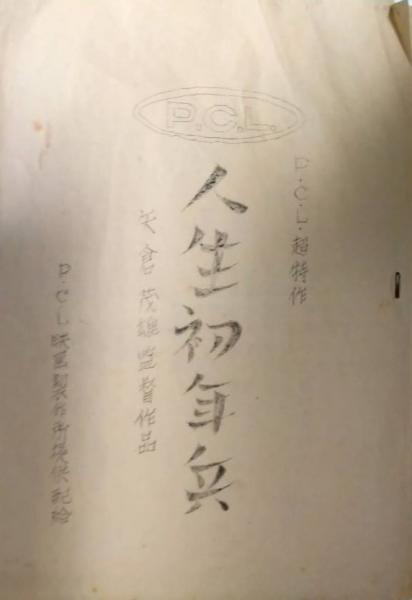 P.C.L.
P.C.L.超特作
人生初年兵
矢倉茂雄監督作品
P.C.L映画製作所提供